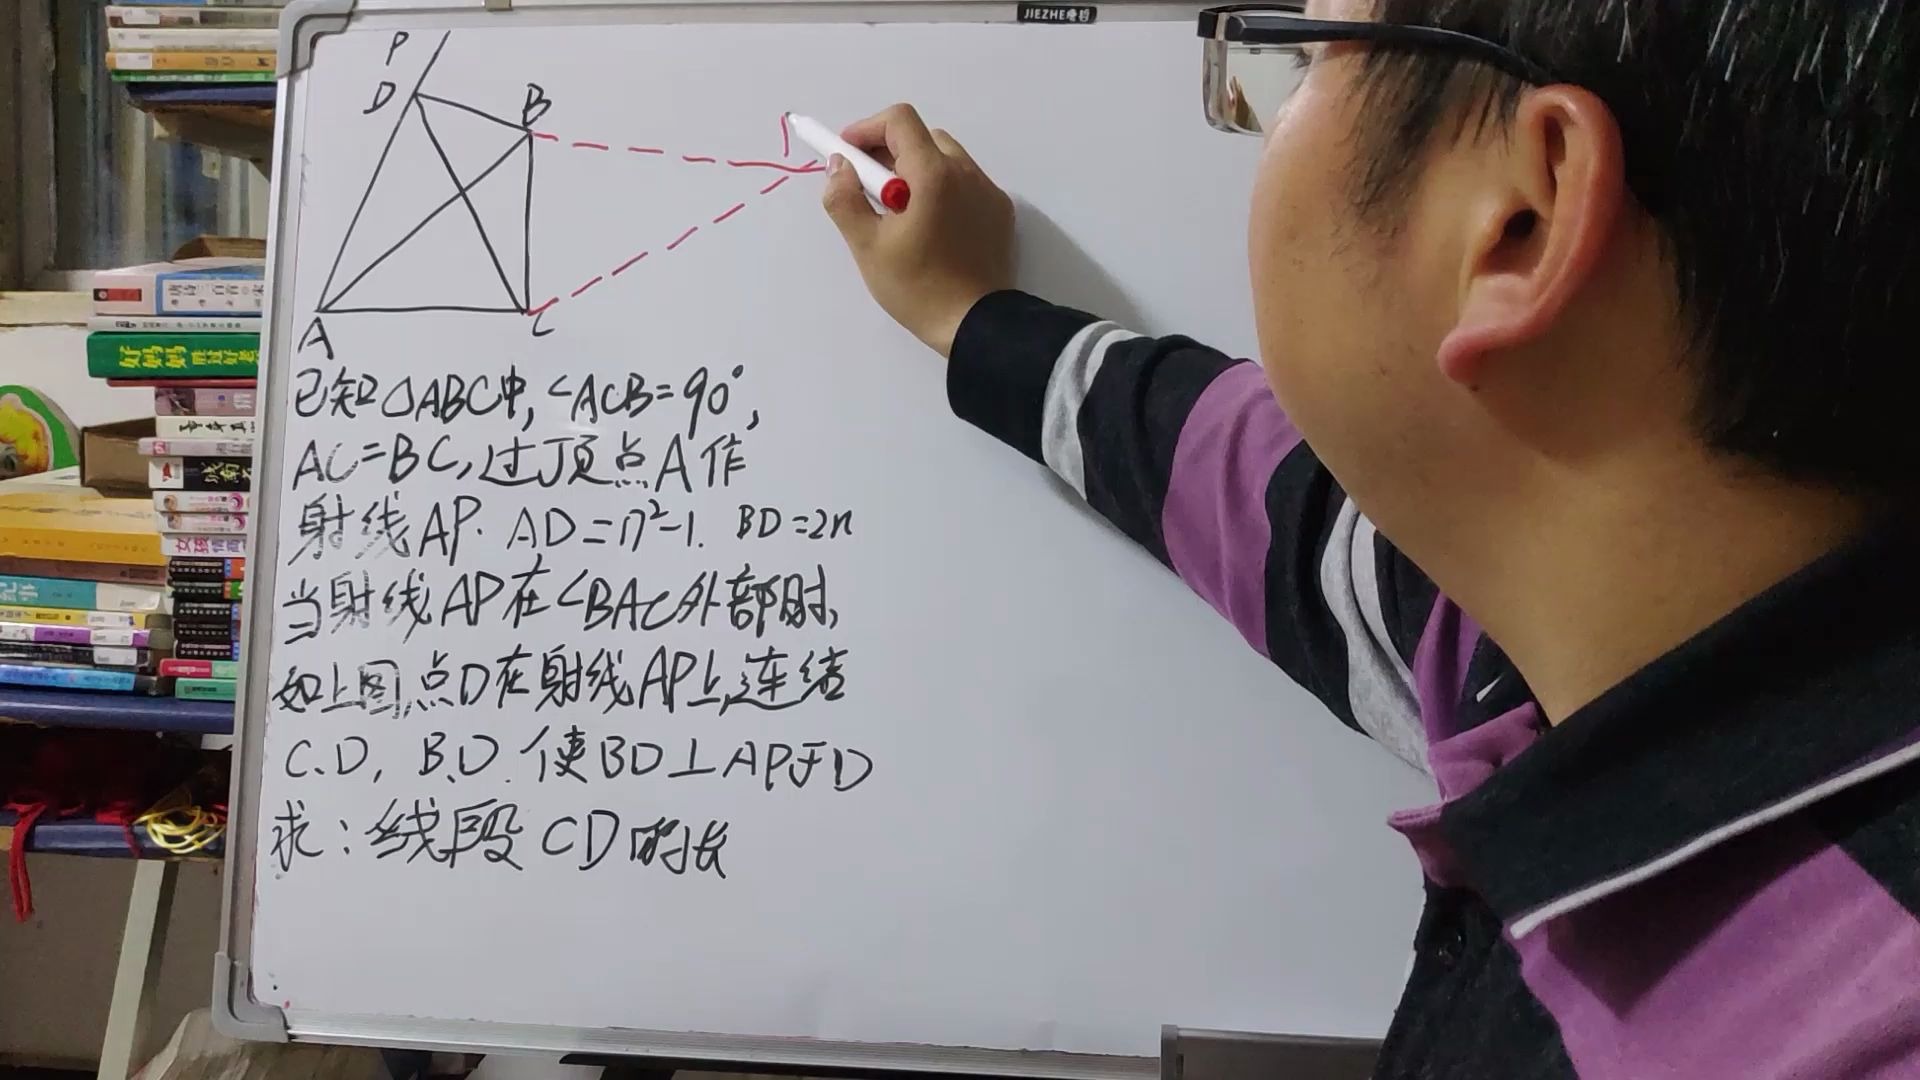 JIEZHE启哲
P
D
B
A
C
已知△ABC中,∠ACB=90°,
AC=BC,过顶点A作
射线AP. AD=n²-1. BD=2n
当射线AP在∠BAC外部时,
如上图,点D在射线AP上,连结
C.D, B.D. 使BD⊥AP于D
求:线段CD的长
好妈妈
胜过好老